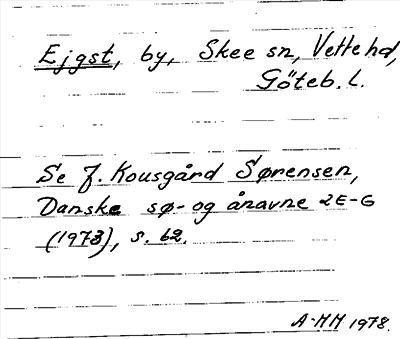 Ejgst, by, Skee sn, Vette hd,
Göteb. L.
Se J. Kousgård Sørensen,
Danske sø- og ånavne 2 E-G
(1973), s. 62.
A-MM 1978.